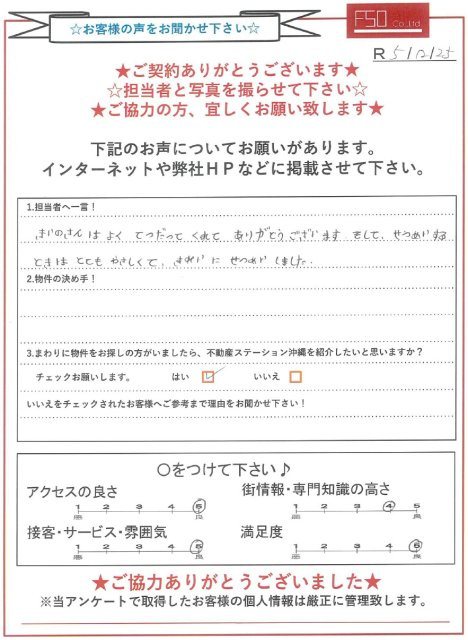 ☆お客様の声をお聞かせ下さい☆
FSO
Co.,Ltd
R 5/12/25
★ご契約ありがとうございます★
☆担当者と写真を撮らせて下さい☆
★ご協力の方、宜しくお願い致します★
下記のお声についてお願いがあります。
インターネットや弊社HPなどに掲載させて下さい。
1.担当者へ一言！
さいのさんは よく てつだって くれて ありがとうございます そして、せつめいする
ときは とても やさしくて、きれいに せつめい しました。
2.物件の決め手！
3.まわりに物件をお探しの方がいましたら、不動産ステーション沖縄を紹介したいと思いますか？
チェックお願いします。 はい ☑ いいえ □
いいえをチェックされたお客様へご参考まで理由をお聞かせ下さい！
○をつけて下さい♪
アクセスの良さ 街情報・専門知識の高さ
1 2 3 4 5 1 2 3 4 5
悪 良 悪 良
接客・サービス・雰囲気 満足度
1 2 3 4 5 1 2 3 4 5
悪 良 悪 良
★ご協力ありがとうございました★
※当アンケートで取得したお客様の個人情報は厳正に管理致します。